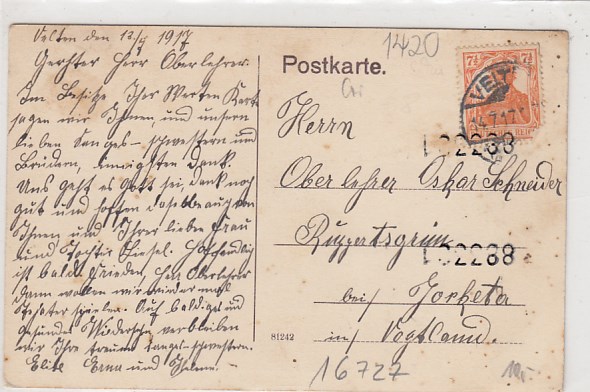 Velten den 12./4 1917
Geehrter Herr Oberlehrer.
Im Besitze Ihrer Werten Karte
sagen wir Ihnen, und unsern
lieben Sanges-schwestern und
Brüdern, innigsten Dank.
Uns geht es Gott sei, dank noch
gut und hoffen dasselbe auch von
Ihnen und Ihrer lieben Frau
und Tochter Liesel. Hoffendlich
ist bald Frieden, Herr Oberlehrer
dann wollen wir wieder mal
Theater spielen. Auf baldiges und
gesundes Wiedersehn verbleiben
wir Ihre treuen sanges-schwestern.
Elise Erna und
1420
Postkarte.
7½ 7½
VELT
Herrn
Oberlehrer Oskar Schneider
Ruppertsgrün
bei Jocketa
in Vogtland.
102288
102288
81242
16727